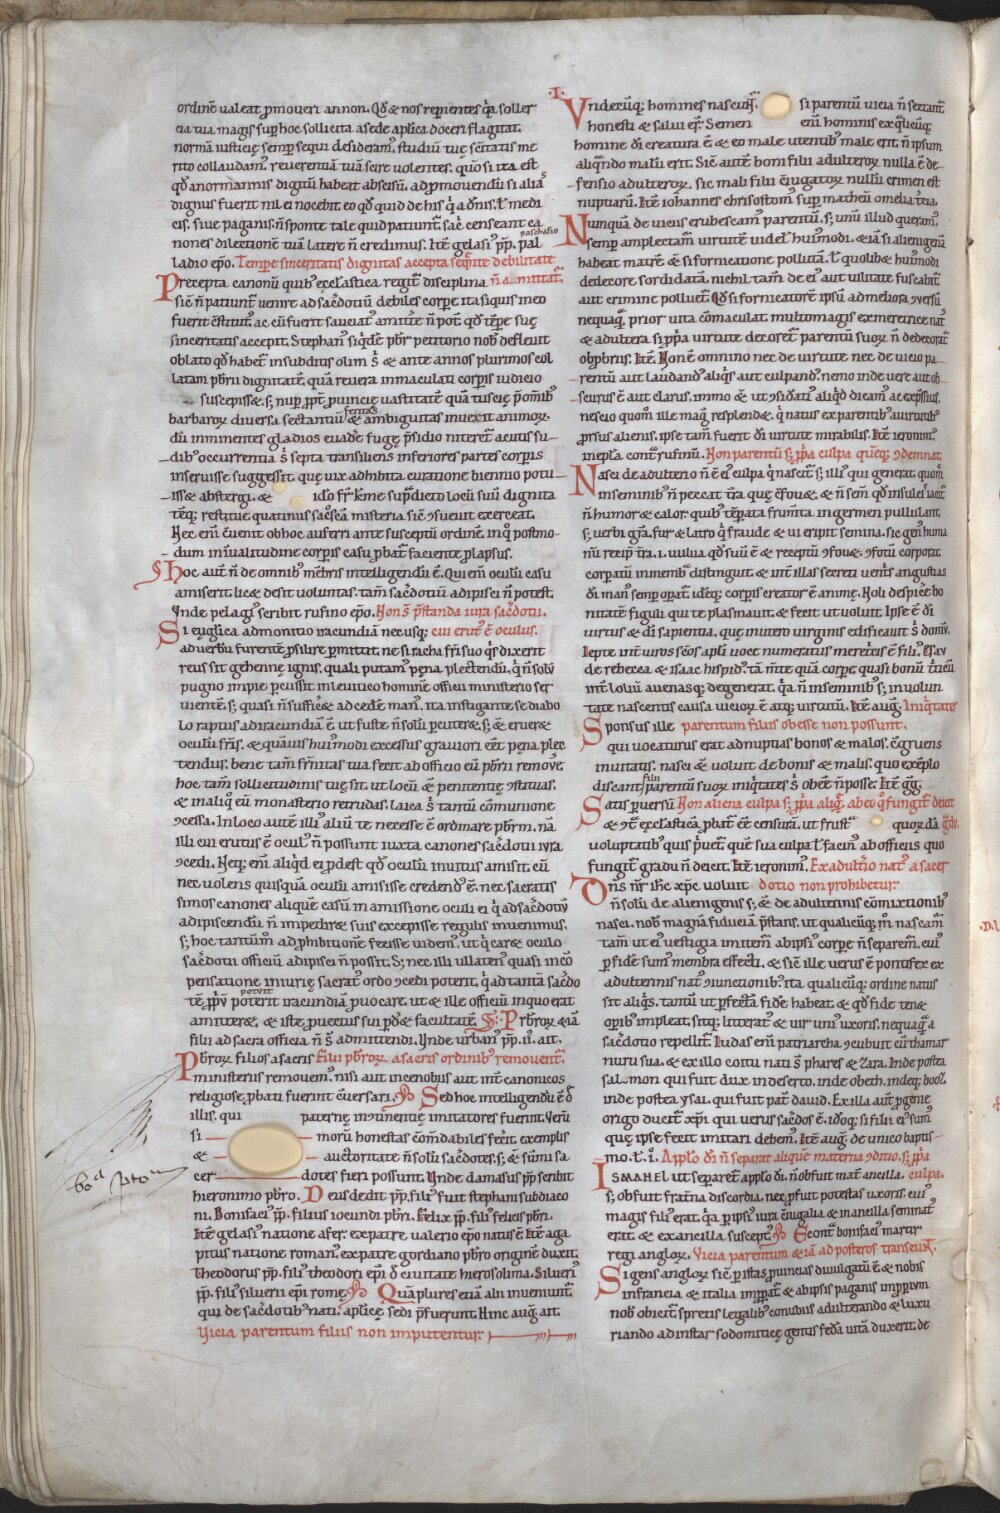 ordinē ualeat p̄moueri an non. Qđ & nos repientes q̇a soller
cia tua magis sup hoc sollicita a sede ap̄lica doceri flagitat.
normā iusticię semp sequi desideram᷒. studiū tuę sc̄itatis me
rito collaudam᷒. reuerentiā tuā scire uolentes. quō si ita est
qđ a normannis digitū habeat abscisū. ad p̄mouendū si aliā
dignus fuerit nil ei nocebit. eo qđ quid de his q̇ a dn̄is. ł medi
cis. siue paganis. n̄ sponte tale quid patiunt᷑. sac̄ censeant ca
paschasio
nones dilectionē tuā latere n̄ credimus. Itē gelasi᷒ pp̄. pal
ladio ep̄o. Tempe sinceritatis dignitas accepta seq̄nte debilitate
Precepta canonū quib᷒ eccl̄astica regit᷑ disciplina n̄ amittat᷑.
sic n̄ patiunt᷑ uenire ad sac̄dotiū debiles corpe. ita siquis in eo
fuerit cs̄titut᷒. ac cū fuerit sauciat᷒ amitte n̄ pot̄. qđ tēpe suę
sinceritatis accepit. Stephan᷒ siq̇dē pb̄r petitorio nob᷒ defleuit
oblato qđ habet᷑ in subditis olim s̄ & ante annos plurimos col
latam pb̄rii dignitatē. quā reuera inmaculati corpis iudicio
suscepisse. s; nup p̄pt̄ puincię uastitatē quā tuscię p̄ omīb᷒
feritas
barbaroꝝ diuersa sectantiū & ambiguitas inuexit animoꝝ.
dū imminentes gladios euadē fugę p̄sidio niteret᷑ acutis su
dib᷒ occurrentia s̄ septa transiliens inferiores partes corpis
inseruisse suggessit. quę uix adhibita curatione biennio potu
isse abstergi. & idō fr̄ k̄me sup̄dicto locū suū dignita
tēq; restitue quatinus sac̄sc̄a misteria sic̄ ꝯsueuit exerceat.
Nec eni᷒ c̄uenit obhoc auferri ante susceptū ordinē. in q̇ postmo
dum in ualitudine corpis casu pbat᷑ faciente plapsus.
Hoc aut̄ n̄ de omnib᷒ mēbris intelligendū ē. Qui em̄ oculū casu
amiserit licet desit uoluntas. tam̄ sac̄dotiū adipisci n̄ potest.
Vnde pelagi᷒ scribit rufino ep̄o. Non s̄ p̄standa iura sac̄dotii.
Si euglica admonitio iracundiā nec usq; cui erut᷒ ē oculus.
ad uerbū furentē psilire pmittit. ne si racha frī suo q̇s dixerit
reus sit gehennę ignis. quali putam᷒ pęna plectendū. q̇ n̄ solū
pugno impie pcussit in leuitico hominē officii ministerio ser
uientē. s; quasi n̄ suffice ad cędē man᷒. ita instigante se diabo
lo raptus ad iracundiā ē ut fuste n̄ solū pcutere. s; & eruere
oculū fr̄is. & quāuis hui᷒modi excessus grauiori eēt pęna plec
tendus. bene tam̄ fr̄nitas tua fecit ab officio eū pb̄rii remouē.
hoc tam̄ sollicitudinis tuę sit. ut locū ei penitentię ꝯstituas.
& in aliq̇ eū monasterio retrudas. laica s̄ tantū cōmunione
ꝯcessa. In loco autē illi᷒ aliū te necesse ē ordinare pb̄rm. nā
illi cui erutus ē ocul᷒ n̄ possunt iuxta canones sac̄dotii iura
ꝯcedi. Neq; eni᷒ aliq̇d ei pdest qđ oculū inuitus amisit. cū
nec uolens quisquā oculū amisisse credend᷒ ē. nec sacratis
simos canones aliquē casū in amissione oculi ei q̇ ad sac̄dotiū
adipiscendū n̄ impetrare suis excepisse regulis inuenimus.
s; hoc tantum᷒ ad phibitionē fecisse uideni᷒. ut q̇ caret oculo
sac̄dotii officiū adipisci n̄ possit. S; nec illi᷒ illateri᷒ quasi in cō
pensatione iniurię sacrat᷑ ordo ꝯcedi poterit. q̇ ad tantā sac̄do
potuit
tē p̄pu poterit iracundiā puocare. ut & ille officiū in quo erat
amitteret. & iste puectus sui pdet facultatē. § Prb̄roꝝ etiā
filii ad sacra officia n̄ s̄ admittendi. Vnde urban᷒ pp̄. ii. ait.
Pb̄roꝝ filios a sacris Filii pb̄roꝝ a sacris ordinib᷒ remouent᷑.
ministeriis remouem᷒. nisi aut in cenobiis aut int̄ canonicos
religiose pbati fuerint c̄uersari. Sed hoc intelligendū ē đ
illis. qui paternę incontinentię imitatores fuerint. Verū
si morū honestas cōm̄dabiles fec̄it. exemplis
& auctoritate n̄ solū sac̄dotes. s; & sūmi sa
cer dotes fieri possunt. Vnde damasus pp̄ scribit
hieronimo pb̄ro. Deus dedit pp̄. fili᷒ fuit stephani subdiaco
ni. Bonifaci᷒ pp̄. filius iocundi pb̄ri. Felix pp̄. fili᷒ felicis pb̄ri.
Itē gelasi᷒ natione afer. ex patre ualerio ep̄o natus ē. Itē aga
pitus natione roman᷒. ex patre gordiano pb̄ro originē duxit.
Theodorus pp̄. fili᷒ theodori ep̄i đ ciuitate hierosolima. Silueri᷒
pp̄. fili᷒ silueri ep̄i romę. Quā plures etiā alii inueniunt᷑
qui de sac̄dotib᷒ nati. ap̄licę sedi p̄fuerunt. Hinc aug᷒. ait.
Vicia parentum filiis non imputentur.
.I.
Vndecūq; homines nascunt᷑. si parentū uicia n̄ sectant᷑
honesti & salui er̄. Semen eni᷒ hominis ex q̇licūq;
homine dī creatura ē. & eo male utentib᷒ male erit. n̄ ipsum
aliq̇ndo malū erit. Sic̄ autē boni filii adulteroꝝ nulla ē de
fensio adulteroꝝ. sic mali filii c̄iugatoꝝ nullū crimen est
nuptiarū. Itē iohannes chrisostom᷒ sup matheū omelia t̄cia.
Nunquā de uiciis erubescam᷒ parentū. s; unū illud queram᷒.
semp amplectam᷒ uirtutē uideł hui᷒modi. etiā si alienigenā
habeat matrē. & si fornicatione pollutā. ł quolibet hui᷒modi
dedecore sordidatā. nichil tam̄ de ei᷒ aut uilitate fuscabit᷑
aut crimine polluet᷑. Qđ si fornicatorē ipsū ad meliora ꝯuersū
nequaq̄ prior uita cōmaculat. multo magis ex meretrice nat᷒
& adultera si ppa uirtute decoret᷑ parentū suoꝝ n̄ dedecorat᷑
obpbriis. Itē. Non ē omnino nec de uirtute nec de uicio pa
rentū aut laudand᷒ aliq̇s aut culpand᷒. nemo inde uere aut ob
scurus ē aut clarus. immo & ut ꝯsidāt᷒ aliq̇d dicam᷒ ac exp̄sius.
nescio quom᷒ ille mag᷒ resplendet. q̇ natus ex parentib᷒ a uirtutib᷒
p̄rsus alienis. ipse tam̄ fuerit đi uirtute mirabilis. Itē ieronim᷒
in epla contr̄ rufinū. Non parentū s; ppa culpa quēq; ꝯdemnat.
Nasci de adulterio n̄ ē ei᷒ culpa q̇ nascit᷑. s; illi᷒ qui generat. quom᷒
in seminib᷒ n̄ peccat t̄ra quę c̄fouet. & n̄ sem̄ qđ in sulcis iacit᷑
n̄ humor & calor. quib᷒ tēpata frum̄ta in germen pullulant.
s; uerbi gr̄a. fur & latro q̇ fraude & ui eripit semina. sic gen᷒ humanū
nū recip t̄ra. i. uulua qđ suū ē & receptū ꝯfouet. ꝯfotū corporat.
corpatū in membr̄ distinguit. & int̄ illas secreti uent̄is angustias
đi man᷒ semp opat᷑. idēq; corpis creator ē animę. Noli despic̄e bo
nitatē figuli qui te plasmauit. & fecit ut uoluit. Ipse ē đi
uirtus & đi sapientia. quę in utero uirginis edificauit s̄ domū.
Iepte int̄ uiros sc̄os ap̄li uoce numeratus meretricis ē fili᷒. Esau
de rebecca & isaac hispid᷒. tā m̄te quā corpe quasi bonū triticū
int̄ loliū auenasq; degenerat. q̇a n̄ in seminib᷒ s; in uolun
tate nascentis causa uicioꝝ ē atq; uirtutū. Itē aug᷒. Iniq̇tates
Sponsus ille parentum filiis obesse non possunt.
qui uocaturus erat ad nuptias bonos & malos. c̄gruens
inuitatis. nasci & uoluit de bonis & malis. quo exēplo
filii
discant parentū suoꝝ iniq̇tates s̄ obeē n̄ posse. Itē gg᷒.
Satis puersū Non aliena culpa s; ppa aliq̇s ab eo q̇ fungit᷑ deicit
& ꝯt̄ eccl̄asticā pbat᷑ eē censurā. ut frust᷒ quorūdā gdu.
uoluptatib᷒ quis p̄uet᷑. quē sua culpa ł facin᷒ ab officiis quo
fungit᷑ gradu n̄ deicit. Itē ieronim᷒. Ex adulťio nat᷒ a sacer
Dn̄s nr̄ ihc̄ xpc̄ uoluit dotio non prohibetur.
n̄ solū de alienigenis s; & de adulterinis cōmixtionib᷒
nasci. nob᷒ magnā fiduciā p̄stans. ut qualicūq; m᷒ nascam᷒
tam̄ ut ei᷒ uestigia imitem᷒ ab ipsi᷒ corpe n̄ separem᷒. cui᷒
p fidē sum᷒ membra effecti. & sic̄ ille uerus ē pontifex ex
adulterinis nat᷒ ꝯiunctionib᷒. ita qualicūq; ordine natus
sit aliq̇s. tantū ut pfectā fidē habeat. & qđ fide tenet
opib᷒ impleat. sitq; litterat᷒ & uir uni᷒ uxoris. nequaq̄ a
sac̄dotio repellit᷑. Iudas eni᷒ patriarcha ꝯcubuit cū thamar
nuru sua. & ex illo coitu nati s̄ phares & zara. Inde postea
salmon qui fuit dux in deserto. inde obeth. indeq; booz.
inde postea ysai. qui fuit pat̄ dauid. Ex illa aut̄ pgenie
origo ducit᷑ xp̄i qui uerus sac̄dos ē. idoq; si filii ei᷒ sum᷒
quę ipse fecit imitari debem᷒. Itē aug᷒. de unico baptis
mo. ł. i. A pplo đi n̄ separat aliquē materna ꝯditio. s; ppa
ISMAHEL ut separaret᷑ a pplo đi. n̄ obfuit mat̄ ancilla. culpa.
s; obfuit frat̄na discordia. nec pfuit potestas uxoris. cui᷒
magis fili᷒ erat. q̇a p ipsi᷒ iura c̄iugalia & in ancilla seminat᷒
erat. & ex ancilla suscept᷒. E contr̄ bonifaci᷒ martir
regi angloꝝ. Vicia parentum etiā ad posteros transeunt᷑.
Si gens angloꝝ sic̄ p istas puincias diuulgatū ē. & nobis
in francia & italia impp̄at᷑ & ab ipsis paganis impperium
nob᷒ obicit᷑. spretis legalib᷒ conubiis adulterando & luxu
riando ad instar sodomiticę gentis fędā uitā duxerit. de